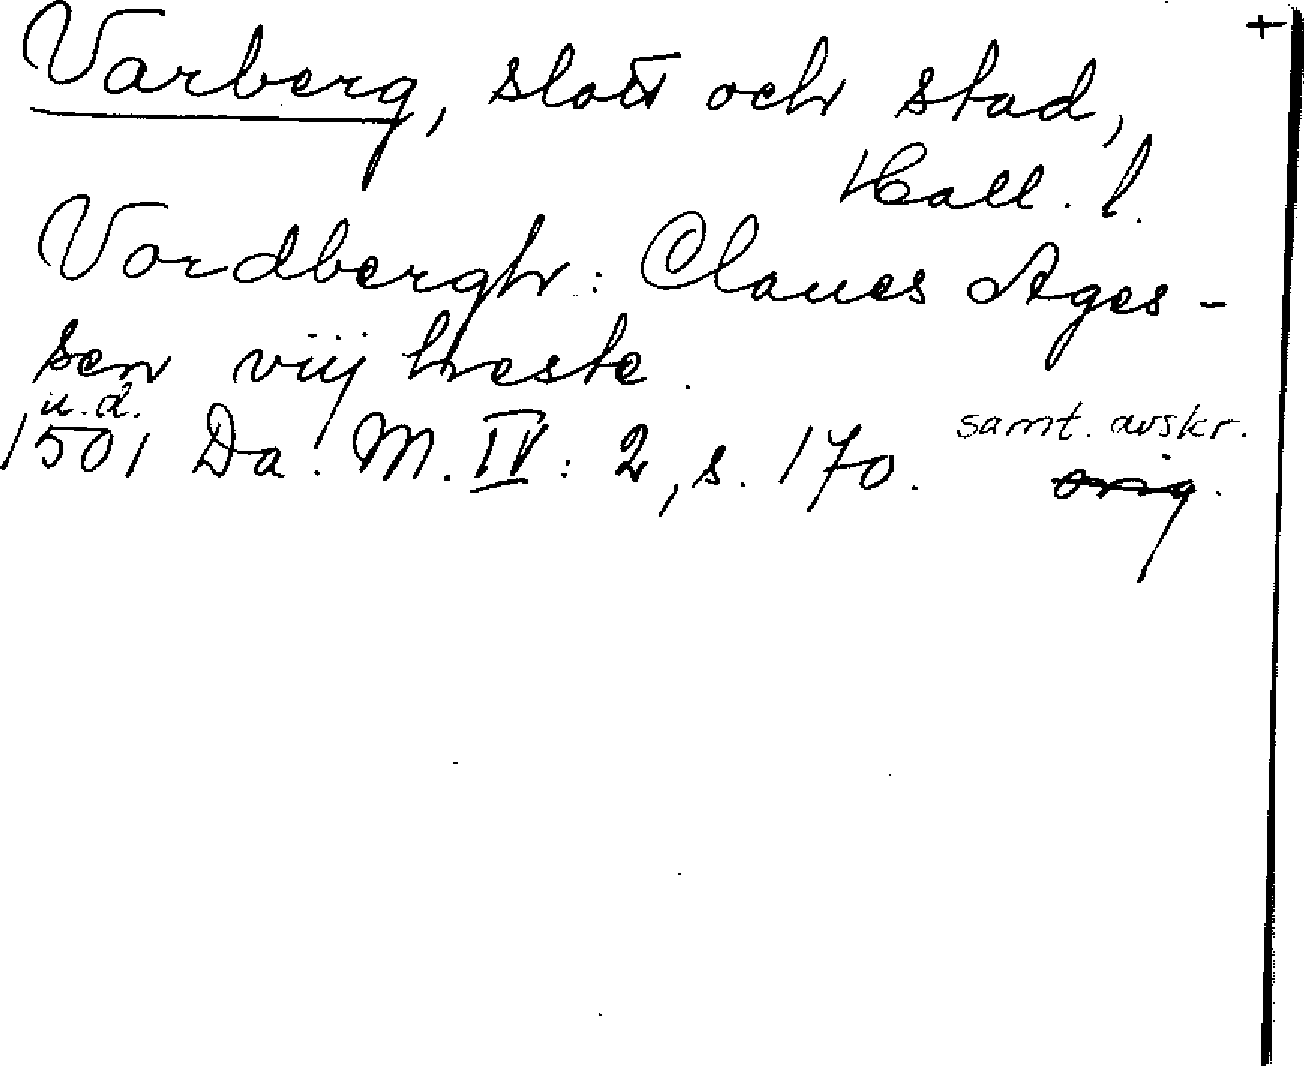 Varberg, slott och stad, +
Hall. l.
Vordbergh: Claues Ages-
sen viij heste.
u.d.
1501 Da. M. IV: 2, s. 170. samt. avskr.
orig.